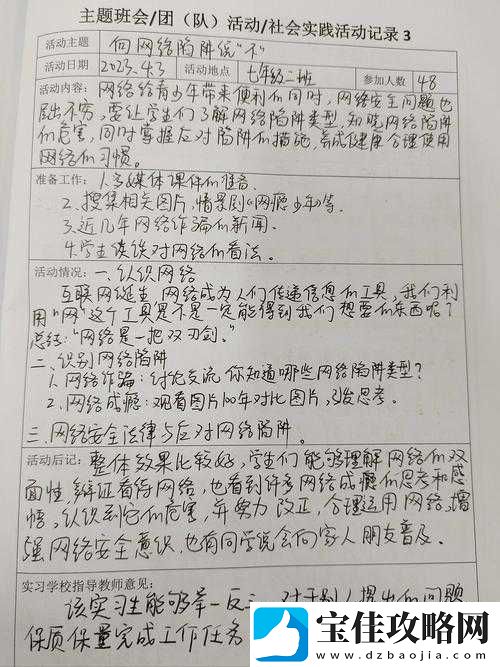 主题班会/团（队）活动/社会实践活动记录 3
活动主题 向网络陷阱说“不”
活动日期 2023.4.3 活动地点 七年级二班 参加人数 48
活动内容：网络给青少年带来便利的同时，网络安全问题也
层出不穷，要让学生们了解网络陷阱类型，知晓网络陷阱
的危害，同时掌握反对陷阱的措施，养成健康合理使用
网络的习惯。
准备工作：1.多媒体课件的准备.
2.搜集相关图片，情景剧《网瘾少年》等.
3.近几年网络诈骗的新闻.
4.学生谈谈对网络的看法。
活动情况：一.认识网络
互联网诞生，网络成为人们传递信息的工具，我们利
用“网”这个工具是不是一定能得到我们想要的东西呢？
总结：“网络是一把双刃剑.”
二.识别网络陷阱
1.网络诈骗：讨论交流 你知道哪些网络陷阱类型？
2.网络成瘾：观看图片100年对比图片，引发思考.
三.网络安全法律与反对网络陷阱.
活动后记：整体效果比较好，学生们能够理解网络的双
面性，辩证看待网络，也看到许多网络成瘾的思考和感
悟，认识到它的危害，并努力改正，合理运用网络，增
强网络安全意识，也有同学说会向家人朋友普及.
实习学校指导教师意见：
该实习生能够举一反三，对于别人提出的问题
保质保量完成工作任务
宝佳攻略网
www.dzbaojia.com